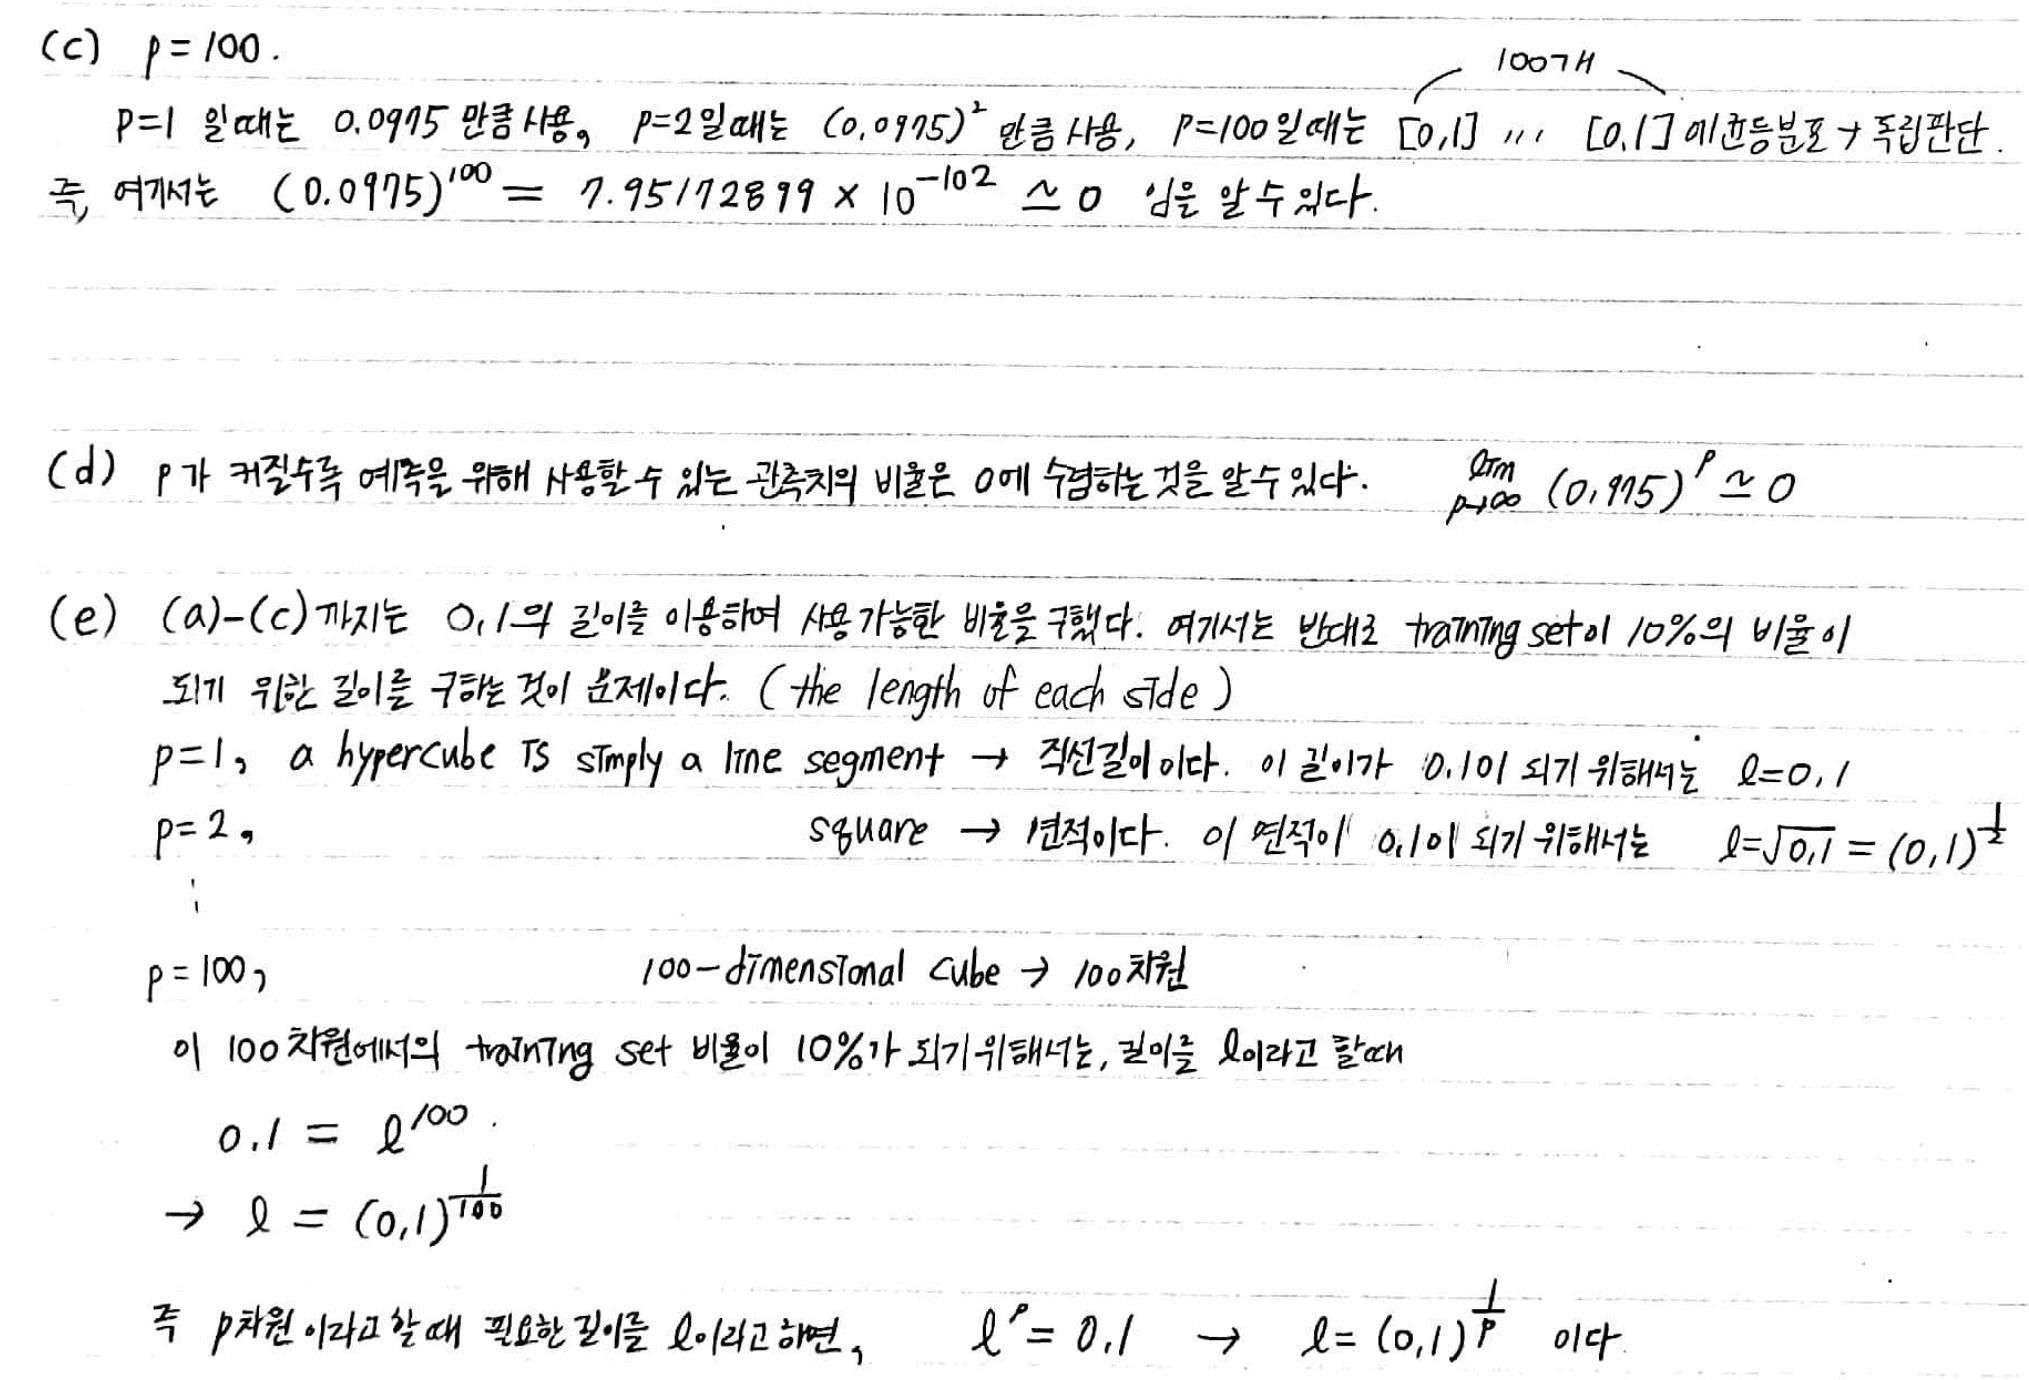 (c) p=100.
100개
P=1 일때는 0.0975 만큼 사용, P=2일때는 (0.0975)² 만큼 사용, P=100일때는 [0,1] ... [0,1]에 균등분포 → 독립판단.
즉, 여기서는 (0.0975)^100 = 7.95172899 × 10^-102 ≃ 0 임을 알 수 있다.
(d) p가 커질수록 예측을 위해 사용할 수 있는 관측치의 비율은 0에 수렴하는 것을 알 수 있다. lim p→∞ (0.975)^p ≃ 0
(e) (a)-(c)까지는 0.1의 길이를 이용하여 사용 가능한 비율을 구했다. 여기서는 반대로 training set이 10%의 비율이
되기 위한 길이를 구하는 것이 문제이다. (the length of each side)
p=1, a hypercube is simply a line segment → 직선길이이다. 이 길이가 0.1이 되기 위해서는 ℓ=0.1
p=2, square → 면적이다. 이 면적이 0.1이 되기 위해서는 ℓ=√0.1 = (0.1)^1/2
⋮
p=100, 100-dimensional cube → 100차원
이 100차원에서의 training set 비율이 10%가 되기 위해서는, 길이를 ℓ이라고 할때
0.1 = ℓ^100.
→ ℓ = (0.1)^1/100
즉 p차원이라고 할 때 필요한 길이를 ℓ이라고 하면, ℓ^p = 0.1 → ℓ = (0.1)^1/p 이다.